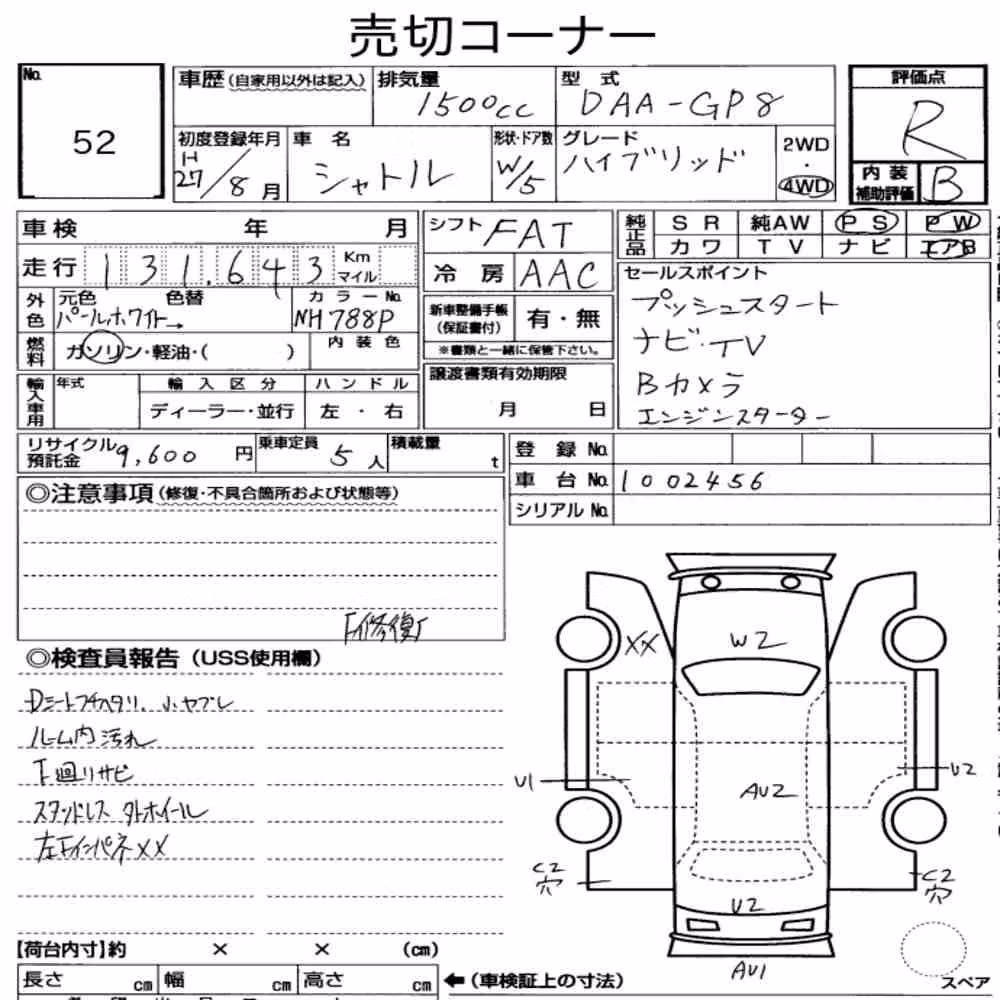 売切コーナー
No. 52
車歴(自家用以外は記入) 排気量 1500cc 型式 DAA-GP8 評価点 R
初度登録年月 H27/8月 車名 シャトル 形状・ドア数 W/5 グレード ハイブリッド 2WD・4WD
内装補助評価 B
車検 年 月 シフト FAT 純正品 SR 純AW PS PW
カワ TV ナビ エアB
走行 131,643 Km マイル 冷房 AAC
セールスポイント
プッシュスタート
ナビ・TV
Bカメラ
エンジンスターター
外色 元色 色替 パールホワイト→ カラーNo. NH788P
新車整備手帳(保証書付) 有・無
※書類と一緒に保管下さい。
燃料 ガソリン・軽油・( ) 内装色
輸入車用 年式 輸入区分 ハンドル
ディーラー・並行 左・右
譲渡書類有効期限
月 日
リサイクル預託金 9,600円 乗車定員 5人 積載量 t
登録No.
車台No. 1002456
シリアルNo.
◎注意事項(修復・不具合箇所および状態等)
◎検査員報告(USS使用欄)
Dシートフチヘタリ、小ヤブレ
ルーム内汚れ
下廻りサビ
スタッドレス 外ホイール
XX
W2
U1
AU2
U2
C2
穴
C2
穴
U2
AU1
スペア
【荷台内寸】約 × × (cm)
長さ cm 幅 cm 高さ cm
←(車検証上の寸法)